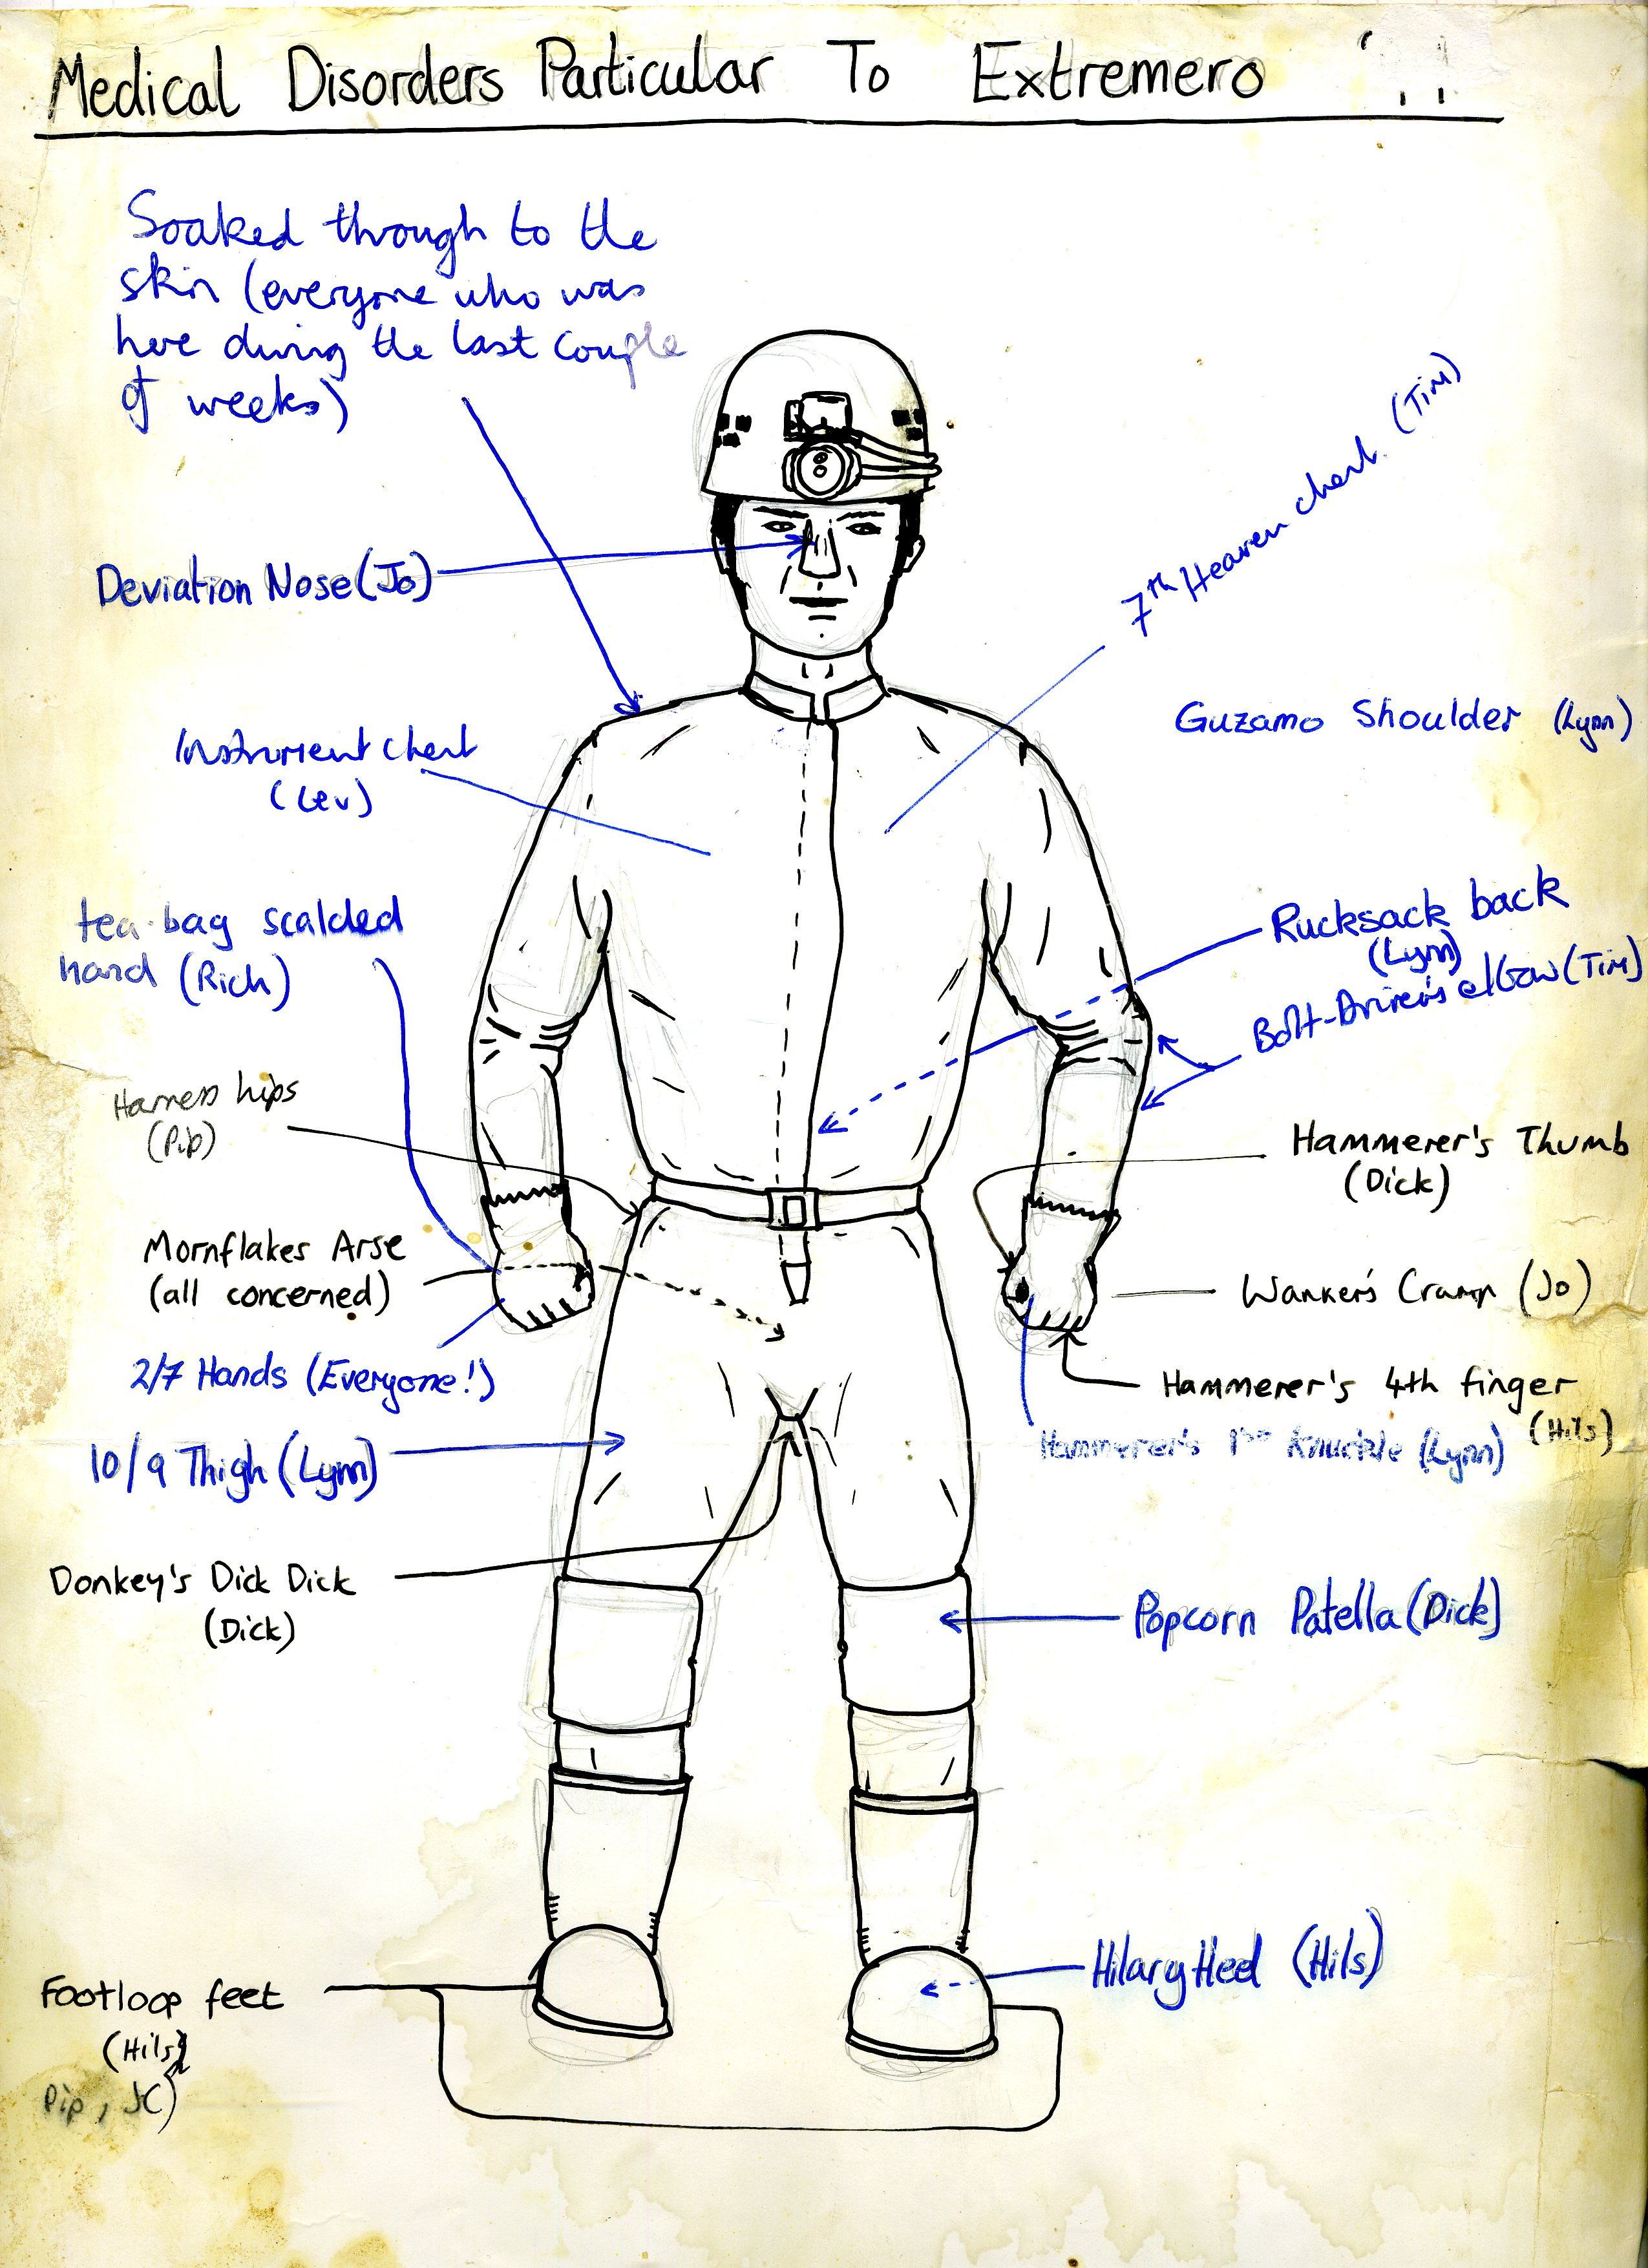 Medical Disorders Particular To Extremero
Soaked through to the
skin (everyone who was
here during the last couple
of weeks)
Deviation Nose (Jo)
7th Heaven chest (Tim)
Instrument chest
(Lev)
Guzamo Shoulder (Lynn)
tea-bag scalded
hand (Rich)
Rucksack back
(Lynn)
Bolt-Driver's elbow (Tim)
Harness hips
(Pip)
Hammerer's Thumb
(Dick)
Mornflakes Arse
(all concerned)
Wanker's Cramp (Jo)
2/7 Hands (Everyone!)
Hammerer's 4th finger
(Hils)
Hammerer's 1st Knuckle (Lynn)
10/9 Thigh (Lynn)
Donkey's Dick Dick
(Dick)
Popcorn Patella (Dick)
Hilary Heel (Hils)
Footloop feet
(Hils)
Pip, JC)